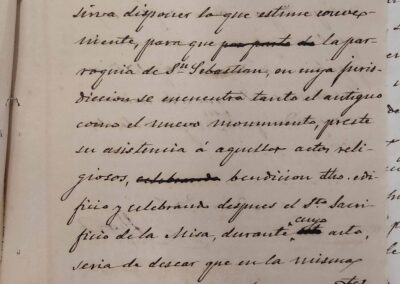 sirva disponer lo que estime conve-
niente, para que por parte de la par-
roquia de Sn Sebastian, en cuya juris-
diccion se encuentra tanto el antiguo
como el nuevo monumento, preste
su asistencia á aquellos actos reli-
giosos, celebrando bendicion dho. edi-
ficio y celebrando despues el Sto. Sacri-
ficio de la Misa, durante cuyo acto,
seria de desear que en la misma